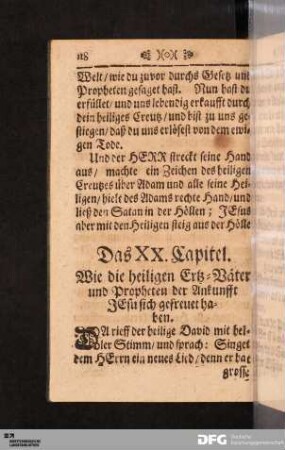 118
Welt/ wie du zuvor durchs Gesetz und
Propheten gesaget hast. Nun hast du
erfüllet/ und uns lebendig erkaufft durch
dein heiliges Creutz/ und bist zu uns ge-
stiegen/ daß du uns erlösest von dem ewi-
gen Tode.
Und der HERR streckt seine Hand
aus/ machte ein Zeichen des heiligen
Creutzes über Adam und alle seine Hei-
ligen/ hielt des Adams rechte Hand/ und
ließ den Satan in der Höllen; JEsus
aber mit den Heiligen stieg aus der Hölle
Das XX. Capitel.
Wie die heiligen Ertz-Väter
und Propheten der Ankunfft
JEsu sich gefreuet ha-
ben.
DA rieff der heilige David mit hel-
ler Stimm/ und sprach: Singet
dem HErrn ein neues Lied/ denn er hat
grosse
DFG